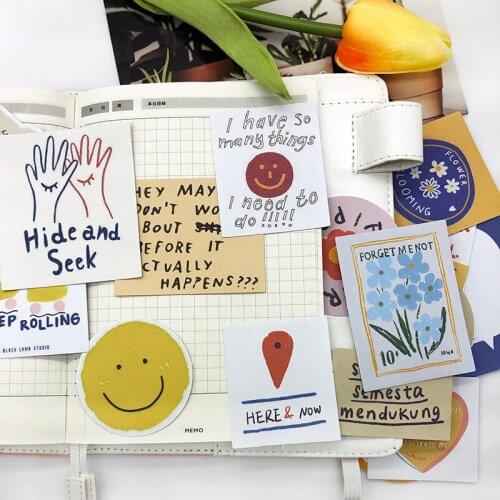 I have so
many things
I need to
do !!!!!
Hide and
Seek
HEY MAY
DON'T WO
ABOUT
BEFORE IT
ACTUALLY
HAPPENS???
FLOWER
FORGET ME NOT
10
EP ROLLING
BLACK LAMB STUDIO
HERE & NOW
MEMO
SEMESTA
MENDUKUNG